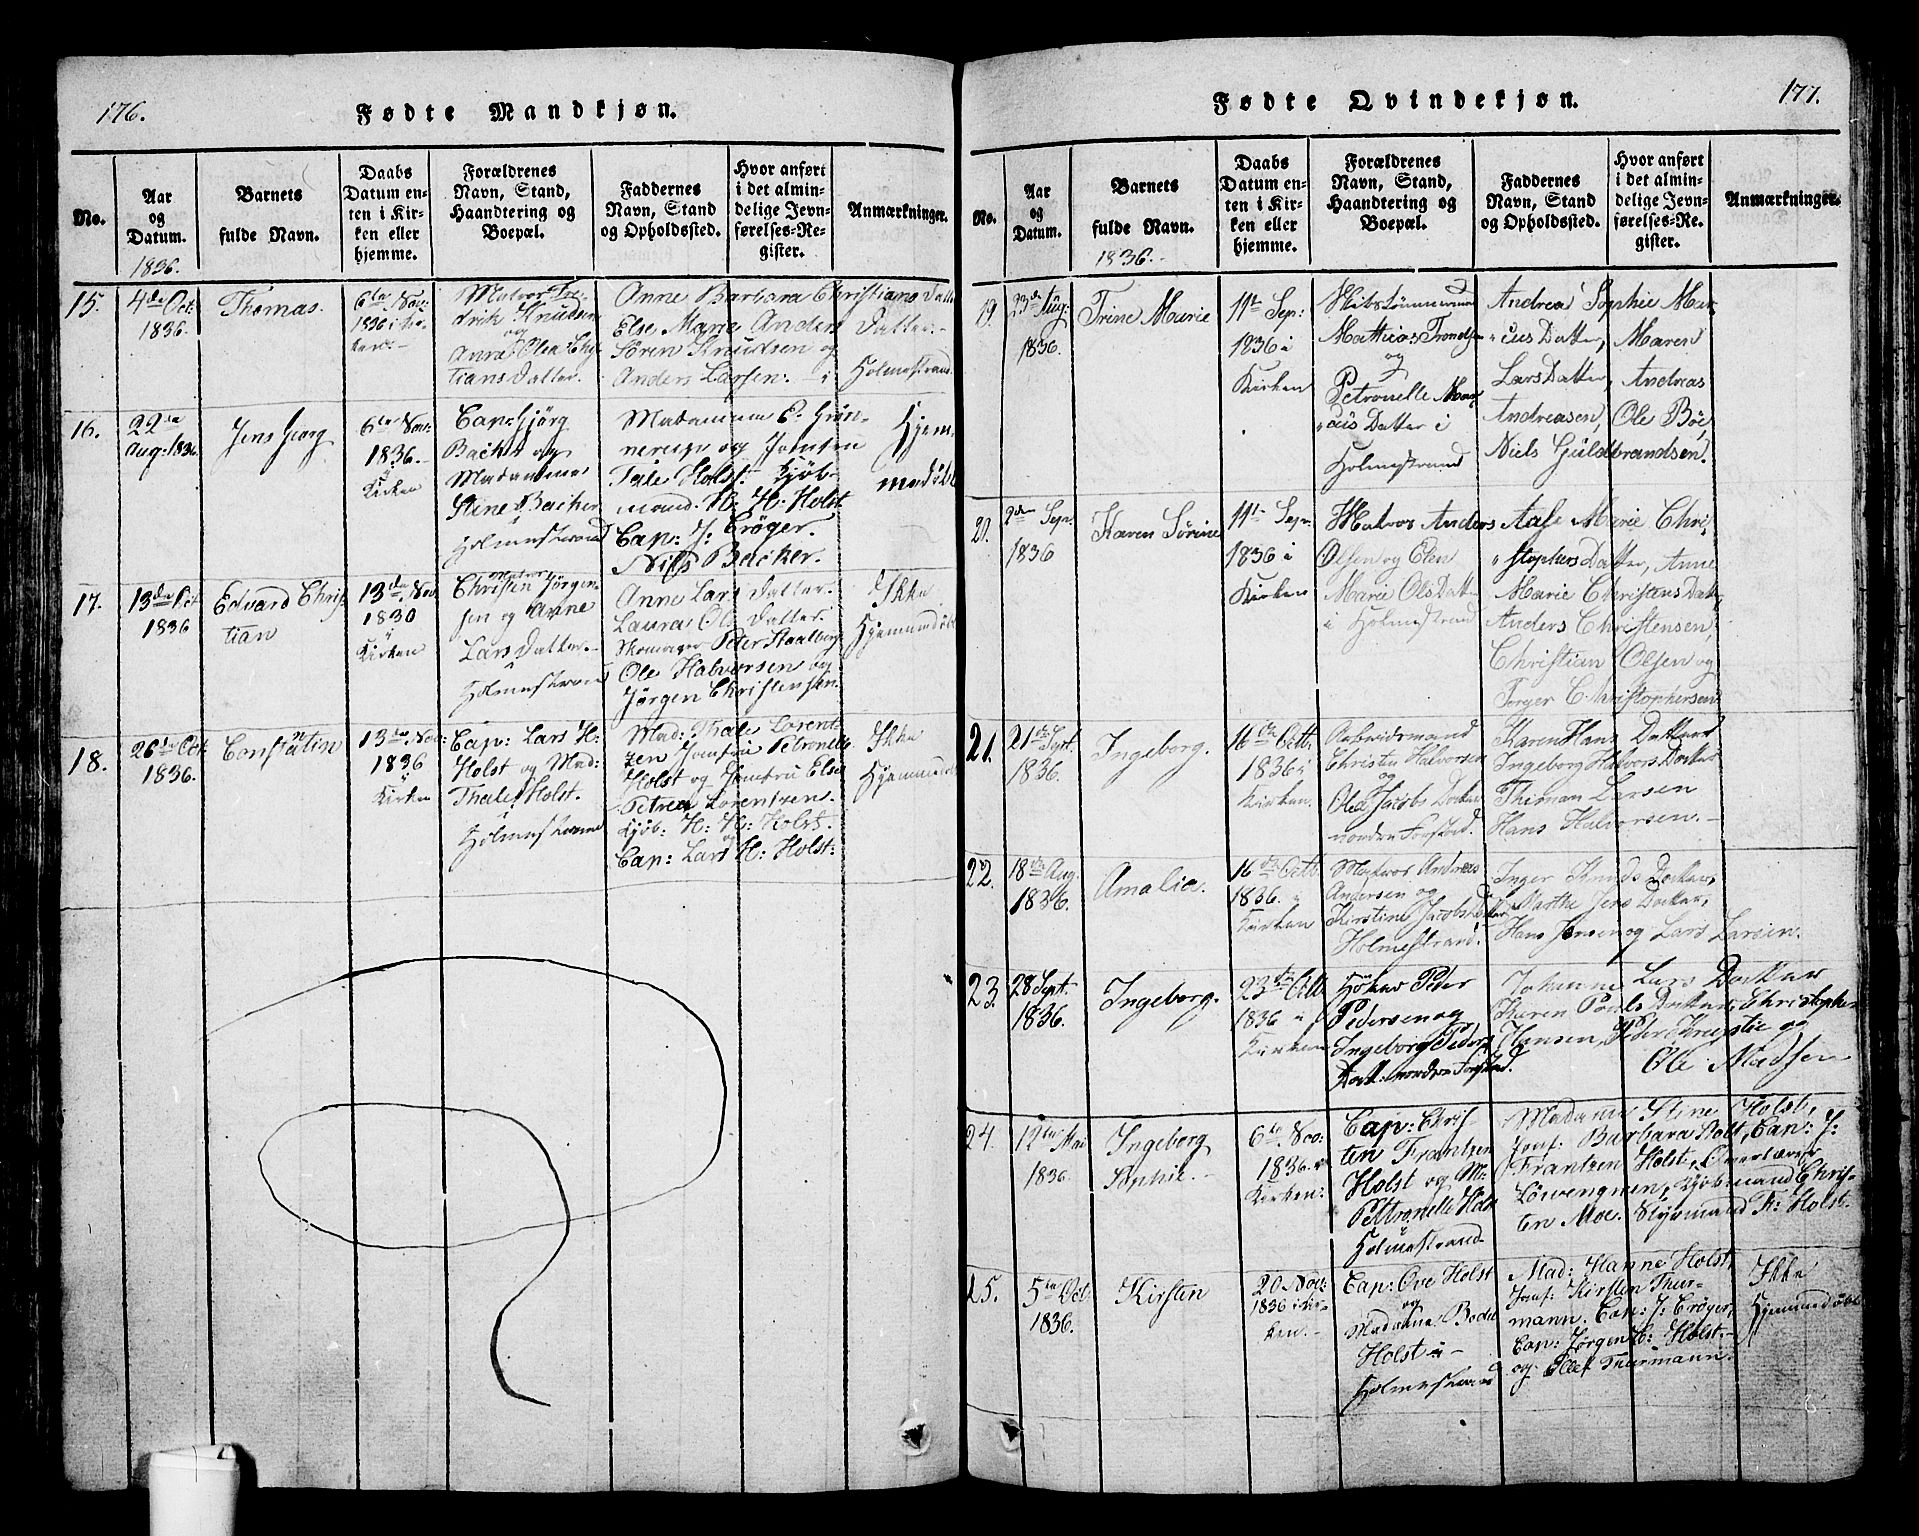 176.
Fødte Mandkjøn.
No.
Aar
og
Datum.
1836.
Barnets
fulde Navn.
Daabs
Datum en-
ten i Kir-
ken eller
hjemme.
Forældrenes
Navn, Stand,
Haandtering og
Boepæl.
Faddernes
Navn, Stand
og Opholdssted.
Hvor anført
i det almin-
delige Jevn-
førelses-Re-
gister.
Anmærkninger.
15.
4de Oct.
1836.
Thomas.
6te Nov:
1836 i Kir-
ken.-
Matros Fre-
drik Knudsen
og
Anne Olea Chri-
tians Datter.
Anne Barbara Christians Datter
Else Marie Anders Datter.-
Søren Knudsen og
Anders Larsen. - i Holmestrand.
16.
22de
Aug: 1836.
Jens Georg
6te Nov:
1836.-
i
Kirken
Cap: Gjörg
Backer og
Madamme
Stine Backer
i
Holmestrand
Madamme C. Grün-
nerup og Jomfru
Tale Holst. Kjøb-
mand. H: H: Holst
Cap: J: Crøger.
Nils Backer.
Hjem̅
mdøbt
17.
13de Oct.
1836
Edvard Chris-
tian
13de Nov
1830
i
Kirken
Matros
Christen Jørgen-
sen og Anne
Lars Datter.-
i
Holmestrand
Anne Lars Datter.
Laura Ols Datter.
Skomager Peter Staalberg
Ole Halvorsen og
Jørgen Christensen.
Ikke
Hjemmedøbt
18.
26de Oct
1836.
Constantin
13de Nov:
1836
i
Kirken
Cap: Lars H:
Holst og Mad:
Thale Holst.
i
Holmestrand
Mad: Thale Lorent-
zen Jomfru Petronelle
Holst og Jomfru Else
Petrea Lorentzen.
Kjøb: H: H: Holst.
og
Cap: Lars H: Holst:
Ikke
Hjemmedøbt
177.
Fødte Qvindekjøn.
No.
Aar
og
Datum.
Barnets
fulde Navn.
1836.-
Daabs
Datum en-
ten i Kir-
ken eller
hjemme.
Forældrenes
Navn, Stand,
Haandtering og
Boepæl.
Faddernes
Navn, Stand
og Opholdssted.
Hvor anført
i det almin-
delige Jevn-
førelses-Re-
gister.
Anmærkninger.
19.
23de Aug:
1836.
Trine Marie
11te Sep:
1836 i
Kirken
Mattias Trondsen
og
Petronelle Mar-
cus Datter i
Holmestrand
Andrea Sophie Mar-
cus Datter, Maren
Lars Datter, Andreas
Andreasen, Ole Böe,
Niels Guldbrandsen.
20.
2den Sep.
1836
Karen Sørine
11te Sep.
1836 i
Kirken
Matros Anders
Olsen og Elen
Marie Ols Datter
i Holmestrand
Aase Marie Chri-
stophers Datter, Anne
Marie Christens Datter
Anders Christensen,
Christian Olsen og
Torger Christophersen
21.
21de Sept.
1836.
Ingeborg.
16de Octb.
1836 i
Kirken
Arbeidsmand
Christen Halvorsen
og
Olea Jacobs Datter
nordre Forstad.
Karen Hans Datter
Ingeborg Halvors Datter
Thiman Larsen
Hans Halvorsen.-
22.
18de Aug.
1836.
Amalia.
16de Octb.
1836. i
Kirken
Matros Andreas
Andersen og
Kirstine Jacobs Datter
Holmestrand.
Inger Knuds Datter,
Marthe Jens Datter,
Hans Jensen og Lars Larsen.
23.
28 Sept.
1836.
Ingeborg.
23de Octb
1836 i
Kirken
Høker Peder
Pedersen og
Ingeborg Peders
Datt: nordre Forstad.
Johanne Lars Datter
Karen Pouls Datter, Christopher
Hansen, Peder Krepstie og
Ole Madsen
24.
12te Mai
1836.
Ingeborg
Sophie.-
6te Nov:
1836. i
Kirken:
Cap: Chris-
ten Frantzen
Holst og M:
Pettronelle Holst
i
Holmestrand
Madame Stine Holst,
Jomf: Barbara Holst, Cap: J:
Frantzen Holst, Overlærer
Löwengreen, Kjøbmand Chris-
ten Moe. Styrmand F: Holst.
25.
5te Oct.
1836.
Kirsten
20 Nov:
1836 i Kir-
ken.-
Cap: Ove Holst
og
Madame Bodel
Holst i-
Holmestrand
Mad: Hanne Holst,
Jomf: Kirsten Thur-
mann. Cap: J: Crøger,
Cap: Jørgen C: Holst.-
og Ellef Thurmann.
Ikke
Hjemmedøbt